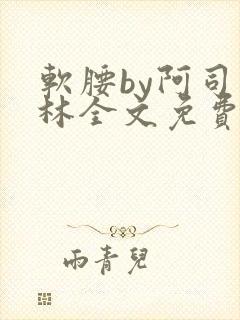 軟腰by阿司
林全文免費
雨青兒